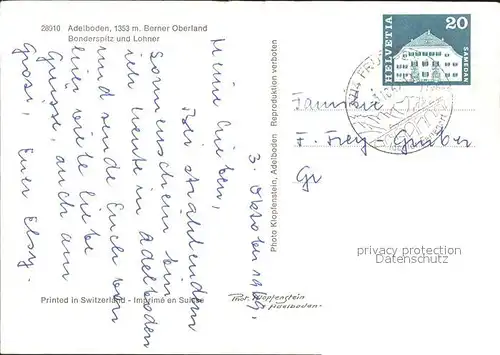 28010 Adelboden, 1353 m. Berner Oberland
Bonderspitz und Lohner
3. Oktober 1969.
Meine Lieben,
Bei strahlendem
Sonnenschein bin
ich heute in Adelboden
und sende Euch von
hier viele liebe
Grüsse, auch an
Grosi, Euer Elsy.
Photo Klopfenstein, Adelboden Reproduktion verboten
Printed in Switzerland - Imprimé en Suisse
Phot. Klopfenstein
Adelboden
HELVETIA
20
SAMEDAN
Familie
F. Frey-Gruber
Gr
privacy protection
Datenschutz